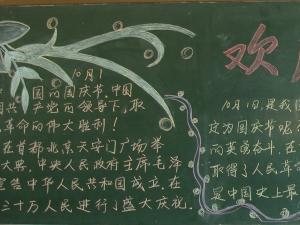 欢
10月1
国的国庆节,中国
国共产党的领导下,取
革命的伟大胜利!
在首都北京天安门广场举
大典,中央人民政府主席毛泽
宣告中华人民共和国成立,在
三十万人民进行了盛大庆祝.
10月1日,是我国
定为国庆节呢
的英勇奋斗,在
取得了人民革
是中国史上最